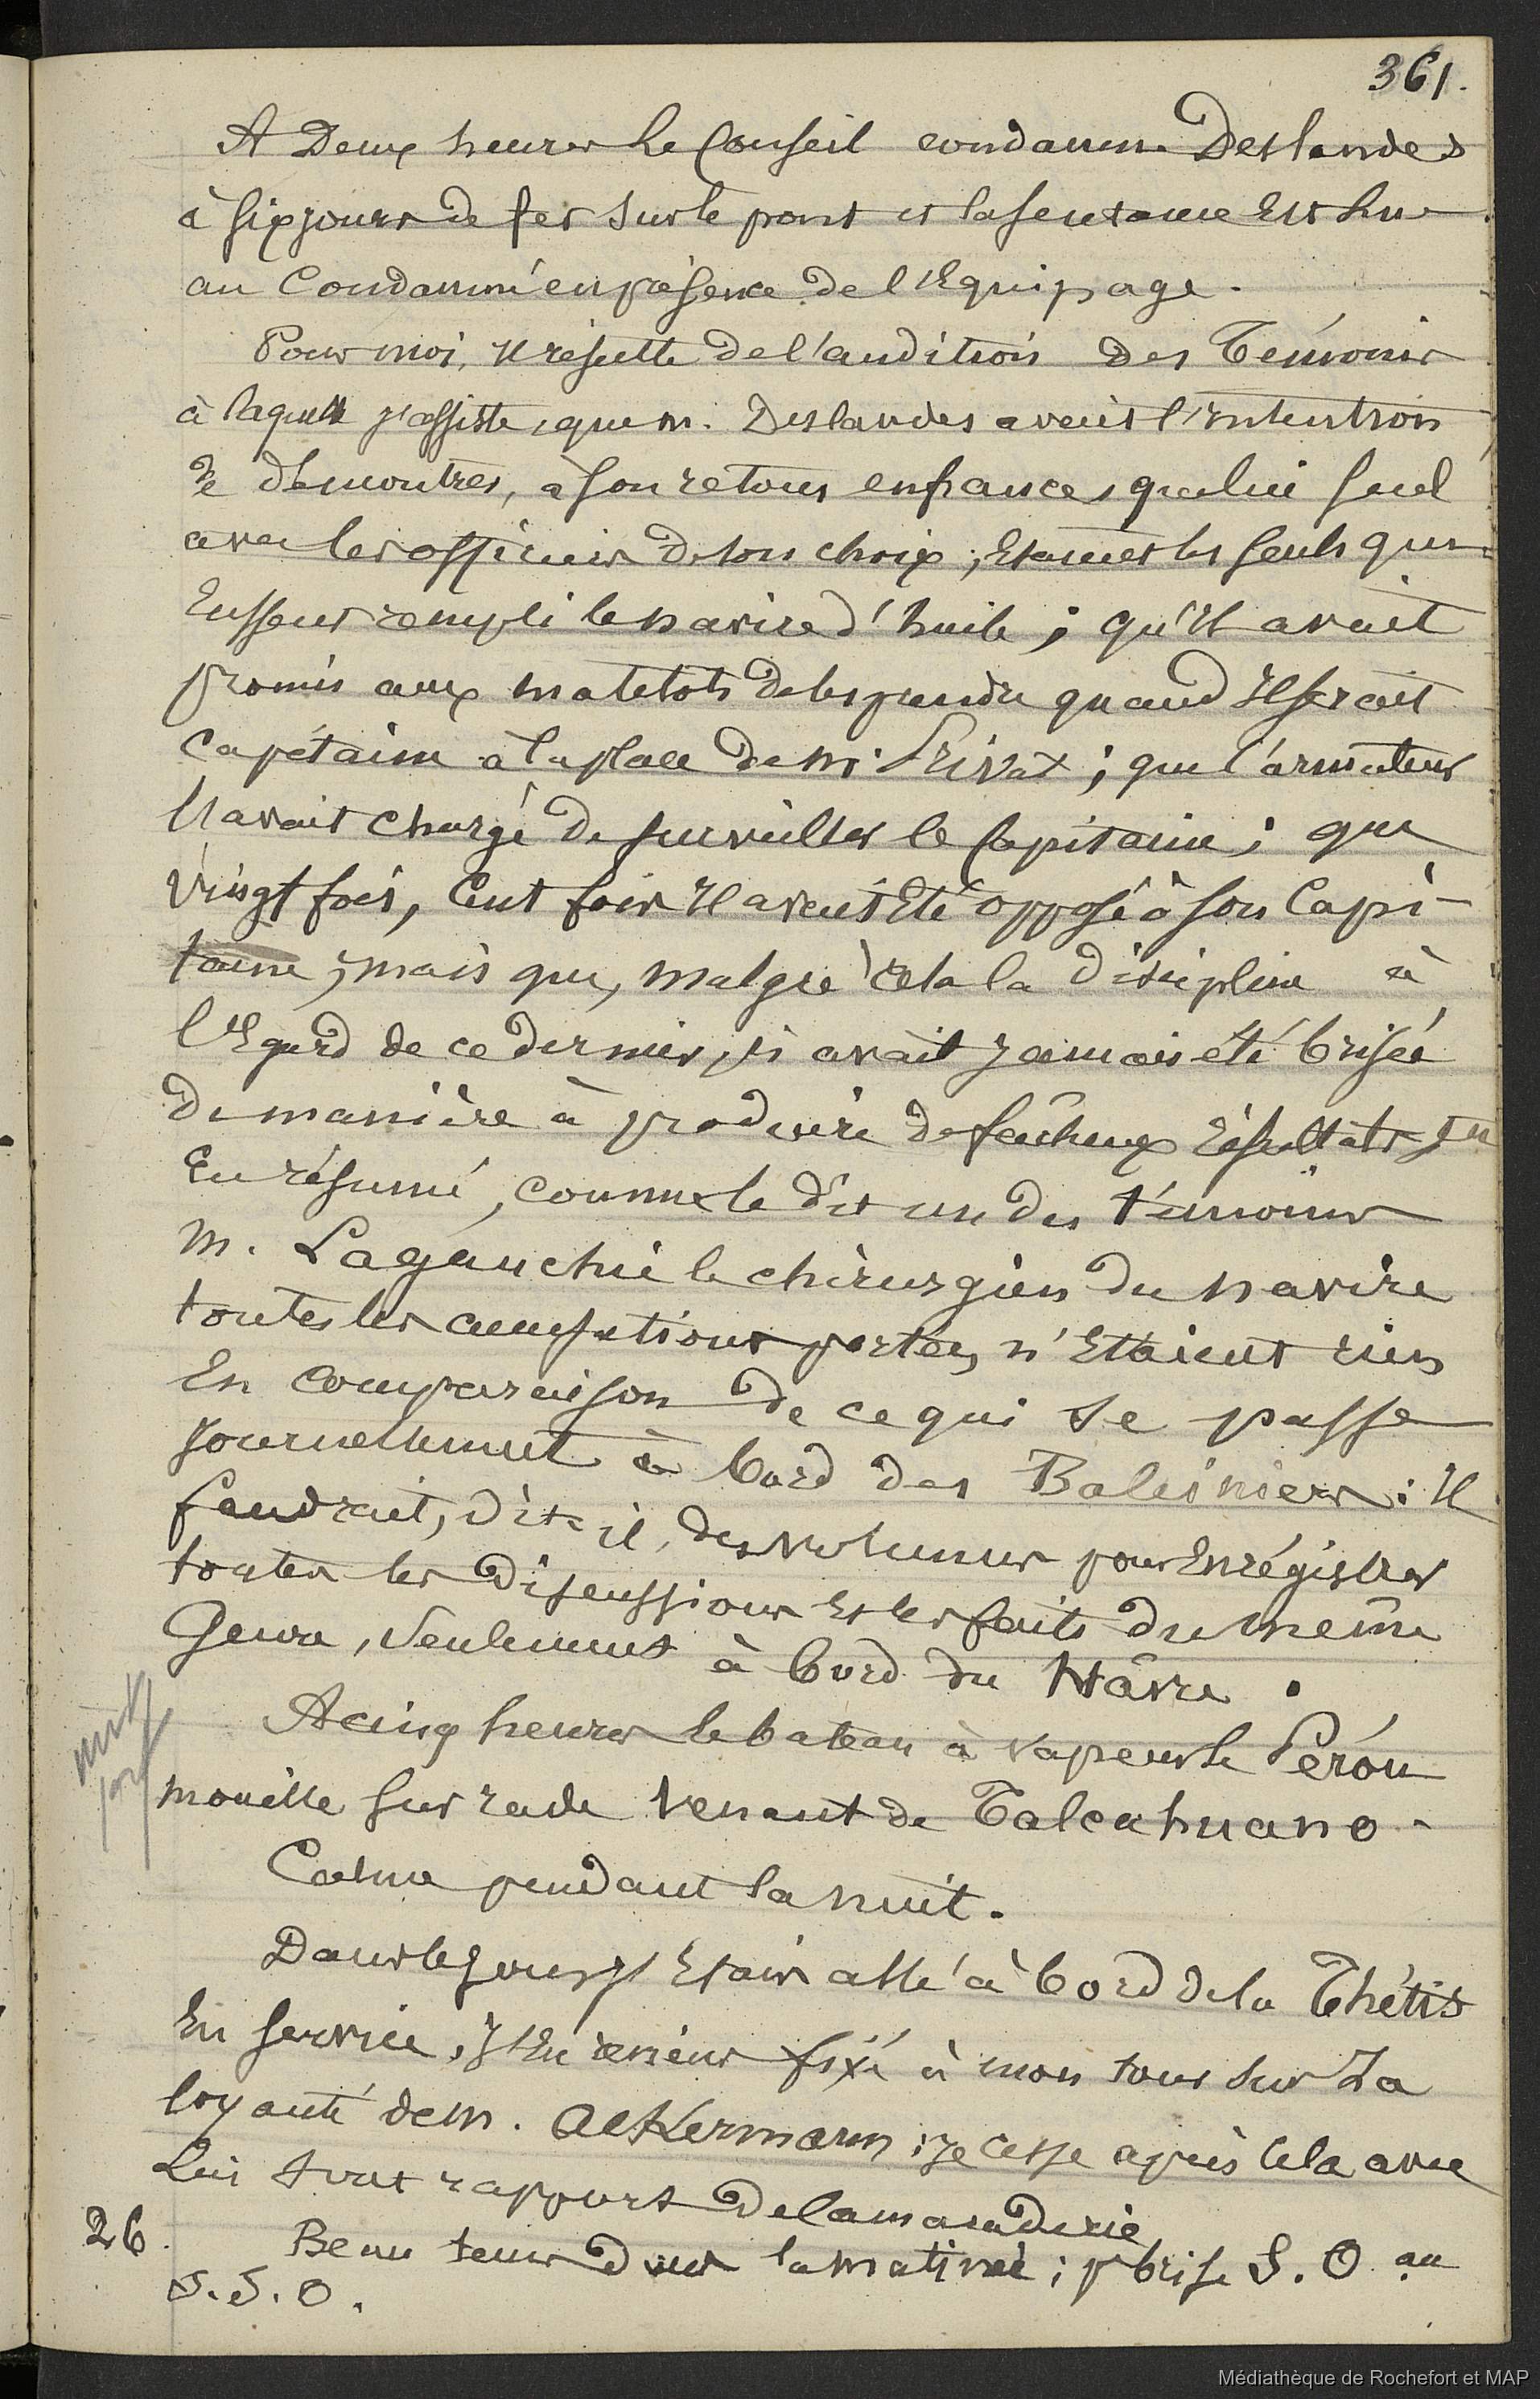 361.
A Deux heures le Conseil condamne Deslandes
à six jours de fer sur le pont et la sentence est lue
au Condamné en présence de l'Equipage.
Pour moi, il résulte de l'audition des Témoins
à laquelle j'assiste, que m. Deslandes avait l'intention
de démontrer, à son retour en france, que lui seul
avec les officiers de son choix, étaient les seuls qui
eussent rempli le navire d'huile ; qu'il avait
promis aux matelots de les prendre quand il serait
capitaine à la place de m. Privat ; que l'armateur
l'avait chargé de surveiller le Capitaine ; que
vingt fois, Cent fois il avait été opposé à son Capi-
taine ; mais que, malgré cela la discipline à
l'Egard de ce dernier, n'avait jamais été brisée
de manière à produire de fâcheux résultats
En résumé, comme le dit un des témoins
m. Lagauchie le chirurgien du navire
toutes les accusations portées n'étaient rien
En comparaison de ce qui se passe
journellement à bord des Baleiniers : il
faudrait, dit-il, des volumes pour Enrégistrer
toutes les discussions et les faits du même
Genre, seulement à bord du Hâvre.
A cinq heures le bateau à vapeur le Pérou
mouille sur rade venant de Talcahuano.
Calme pendant la nuit.
Dans le jour j'étais allé à bord de la Thétis
En service, j'en reviens fixé à mon tour sur la
loyauté de m. Ackermann ; je cesse après cela avec
Lui tout rapport de camaraderie
26. Beau temps dans la matinée ; pte brise S. O. au
S. S. O.
Médiathèque de Rochefort et MAP